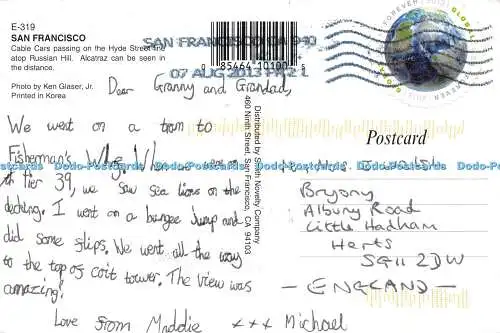 E-319
SAN FRANCISCO
Cable Cars passing on the Hyde Street line
atop Russian Hill. Alcatraz can be seen in
the distance.
Photo by Ken Glaser, Jr.
Printed in Korea
SAN FRANCISCO CA 940
07 AUG 2013 PM 2 L
0 85464 10100 5
FOREVER
GLOBAL
Distributed by Smith Novelty Company
460 Ninth Street, San Francisco, CA 94103
Postcard
Dear Granny and Grandad,
We went on a tram to
Fisherman's Wharf. When we were on
Pier 39, we saw sea lions on the
decking. I went on a bungee jump and
did some flips. We went all the way
to the top of coit tower. The view was
amazing!
Love from Maddie xxx Michael
Bryony
Albury Road
Little Hadham
Herts
SG11 2DW
- ENGLAND -